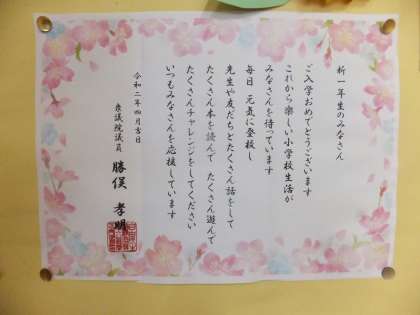 新一年生のみなさん
ご入学おめでとうございます
これから楽しい小学校生活が
みなさんを待っています
毎日 元気に登校し
先生や友だちとたくさん話をして
たくさん本を読んで たくさん遊んで
たくさんチャレンジをしてください
いつもみなさんを応援しています
令和二年四月吉日
衆議院議員 勝俣 孝明